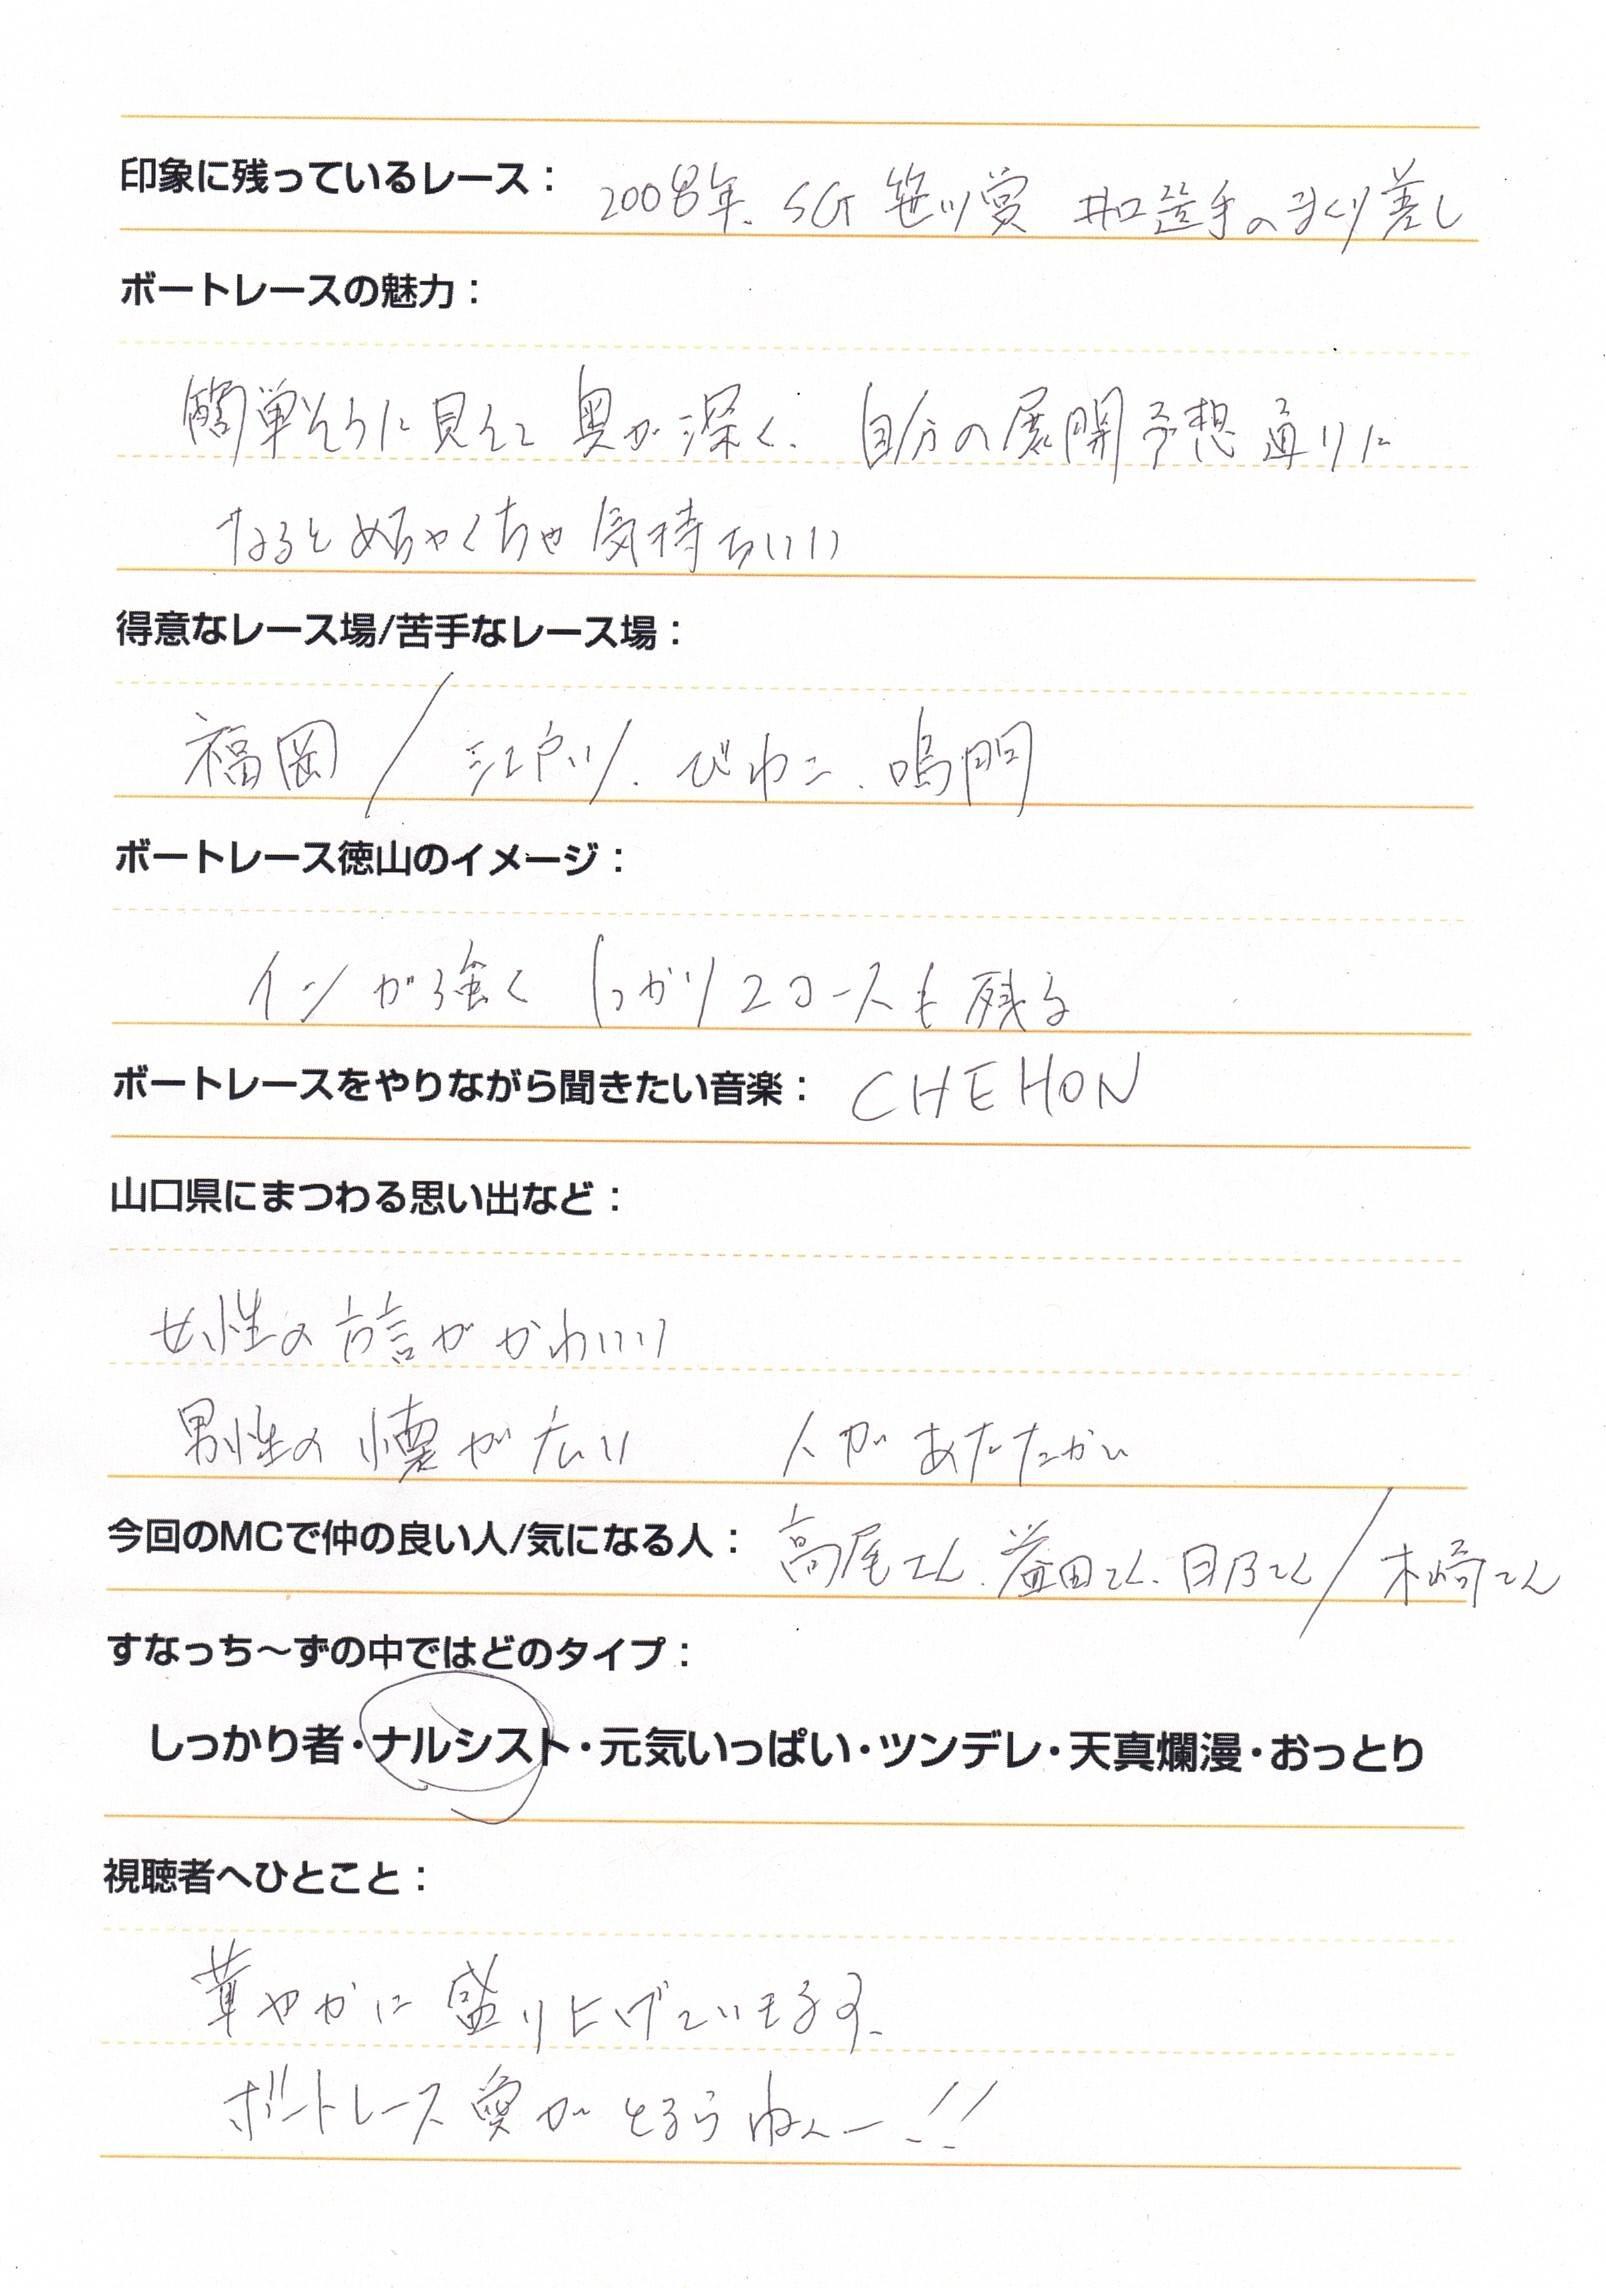 印象に残っているレース： 2008年、SG 笹川賞 井口選手のまくり差し
ボートレースの魅力：
簡単そうに見えて奥が深く、自分の展開予想通りに
なるとめちゃくちゃ気持ちいい
得意なレース場/苦手なレース場：
福岡 / 江戸川、びわこ、鳴門
ボートレース徳山のイメージ：
インが強く しっかり2コースも残る
ボートレースをやりながら聞きたい音楽： CHEHON
山口県にまつわる思い出など：
女性の方言がかわいい
男性の懐が広い 人があたたかい
今回のMCで仲の良い人/気になる人： 高尾さん、益田さん、日乃さん / 木崎さん
すなっち～ずの中ではどのタイプ：
しっかり者・ナルシスト・元気いっぱい・ツンデレ・天真爛漫・おっとり
視聴者へひとこと：
華やかに盛り上げていきます、
ボートレース愛が